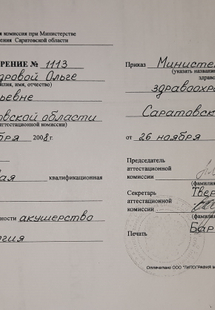 комиссия при Министерстве
Саратовской области
РЕНИЕ № 1113
дровой Ольге
имя, отчество)
ьевне
овской области
аттестационной комиссии)
бря 2008 г.
ая квалификационную
ности акушерство
огия
Приказ Министе
(указать назван
здравоохр
Саратовск
от 26 ноября
Председатель
аттестационной
комиссии
(фамили
Секретарь Твер
аттестационной
комиссии
(фамили
Печать Бар
Отпечатано ООО "ТИПОГРАФИЯ